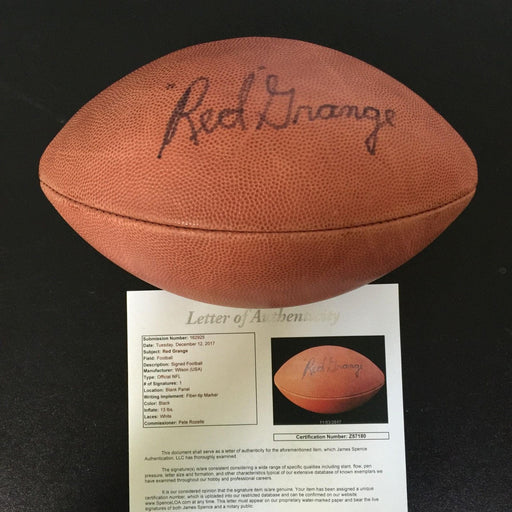 "Red" Grange
Letter of Authenticity
Submission Number: 162925
Date: Tuesday, December 12, 2017
Subject: Red Grange
Field: Football
Description: Signed Football
Manufacturer: Wilson (USA)
Type: Official NFL
# of Signatures: 1
Location: Blank Panel
Writing Implement: Fiber-tip Marker
Color: Black
Inflate: 13 lbs.
Laces: White
Commissioner: Pete Rozelle
"Red" Grange
Certification Number: Z57180
This document shall serve as a letter of authenticity for the aforementioned item, which James Spence
Authentication, LLC has thoroughly examined.
The signature(s) is/are consistent considering a wide range of specific qualities including slant, flow, pen
pressure, letter size and formation, and other characteristics typical of our extensive database of known exemplars we
have examined throughout our hobby and professional careers.
It is our considered opinion that the signature item is/are genuine. Your item has been assigned a unique
certification number, which is uploaded into our restricted database and can be confirmed on our website
www.SpenceLOA.com at any time. This letter must appear on our proprietary water-marked paper and bear the live
signatures of both James Spence and a notary public.